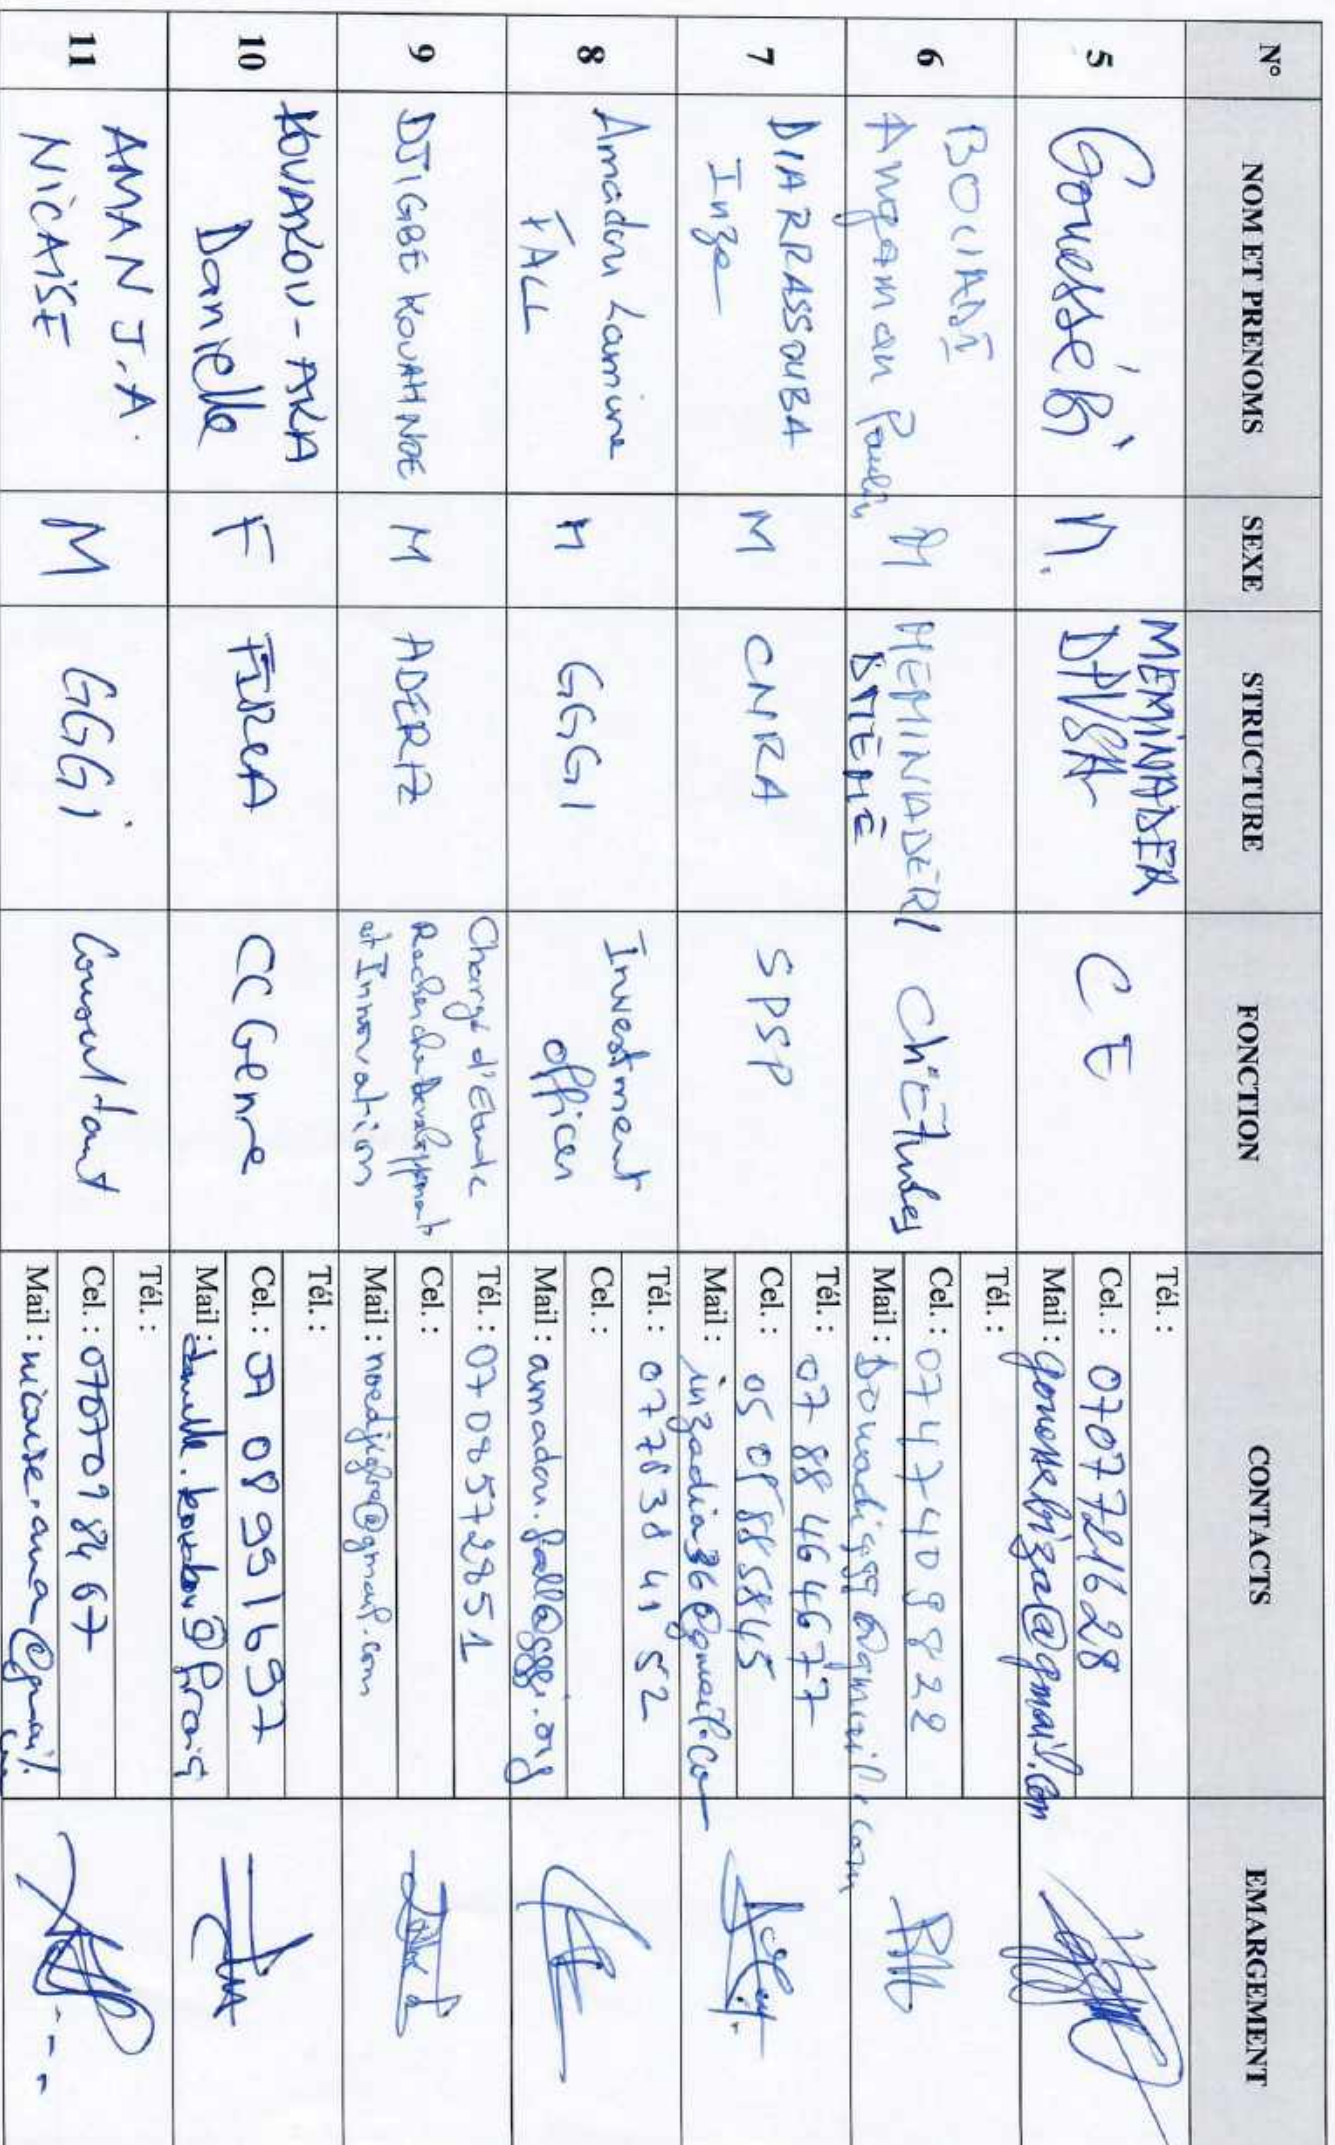 N° NOM ET PRENOMS SEXE STRUCTURE FONCTION CONTACTS EMARGEMENT
5
Gouessé Bi
M.
MEMINADER
DPVSA
C E
Tél. :
Cel. : 0707721628
Mail : gouessebiza@gmail.com
6
BOUADI
Angaman Paulin
M
MEMINADERI
DTEME
Ch. Etudes
Tél. :
Cel. : 07 47 40 98 22
Mail :
7
DIARRASSOUBA
Inza
M
CNRA
SPSP
Tél. : 07 88 46 46 77
Cel. : 05 05 88 58 45
Mail : inzadia36@gmail.co
8
Amadou Lamine
FALL
M
GGGI
Investment
officer
Tél. : 07 78 38 41 52
Cel. :
Mail : amadou.fall@gggi.org
9
DJIGBE KOUAH NOE
M
ADERIZ
Chargé d'Etude
Recherche Développement
et Innovation
Tél. : 07 08 57 28 51
Cel. :
Mail : noedjigbe@gmail.com
10
KOUAKOU-AKA
Danielle
F
FIRCA
CC Genre
Tél. :
Cel. : 07 08 99 16 97
Mail :
11
AMAN J.A.
NICAISE
M
GGGI
Consultant
Tél. :
Cel. : 0707098467
Mail : nicaise.ama@gmail.